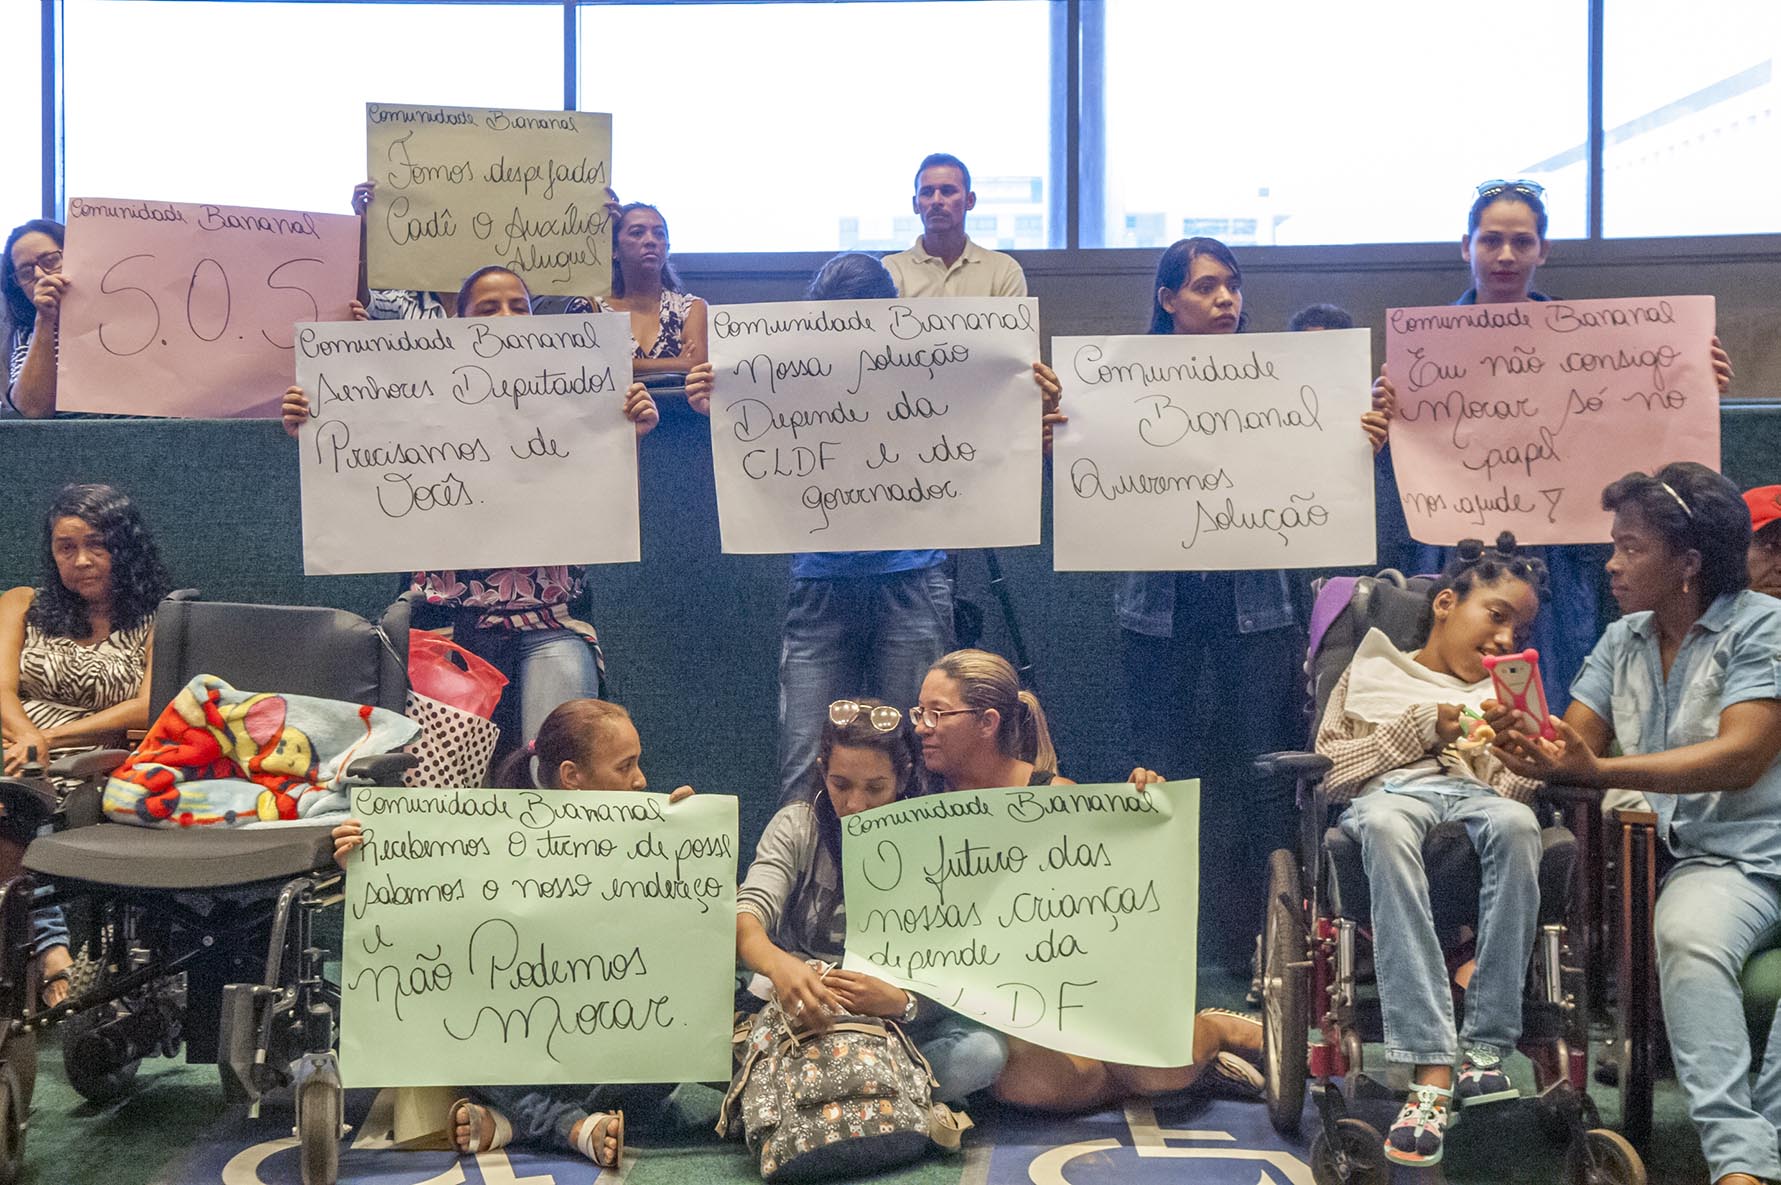 Comunidade Bananal
Fomos despejados
Cadê o Auxílio
Aluguel
Comunidade Bananal
S.O.S
Comunidade Bananal
Senhores Deputados
Precisamos de
Vocês.
Comunidade Bananal
Nossa solução
Depende da
CLDF e do
governador.
Comunidade
Bananal
Queremos
solução
Comunidade Bananal
Eu não consigo
Morar só no
papel.
nos ajude
Comunidade Bananal
Recebemos o termo de posse
sabemos o nosso endereço
e
não Podemos
Morar.
Comunidade Bananal
O futuro das
nossas crianças
depende da
CLDF